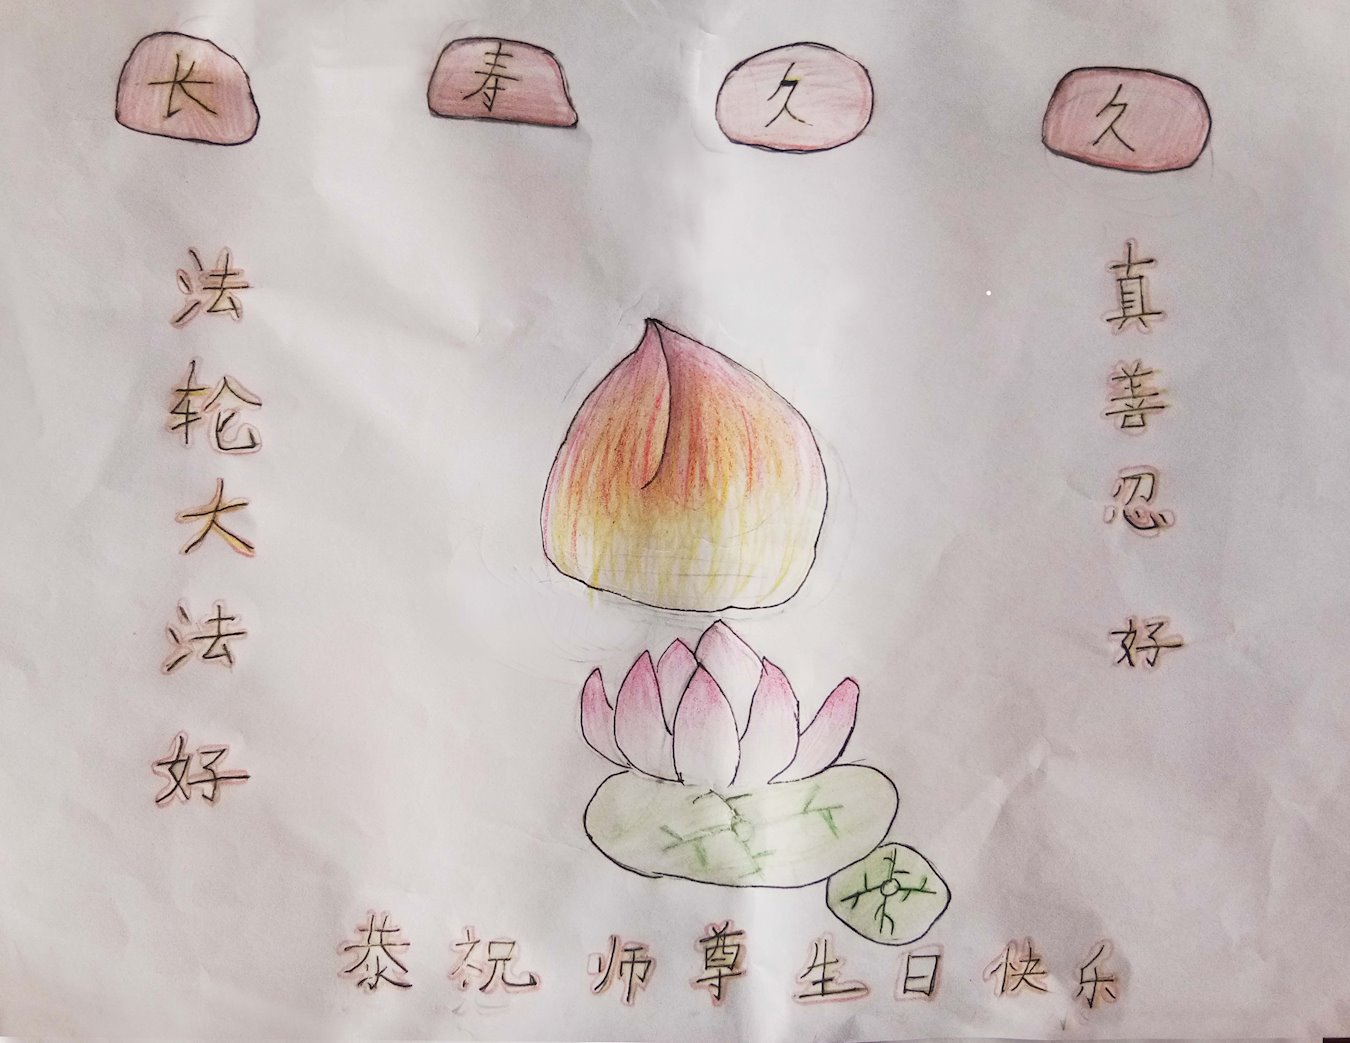 长寿久久
法轮大法好
真善忍好
恭祝师尊生日快乐